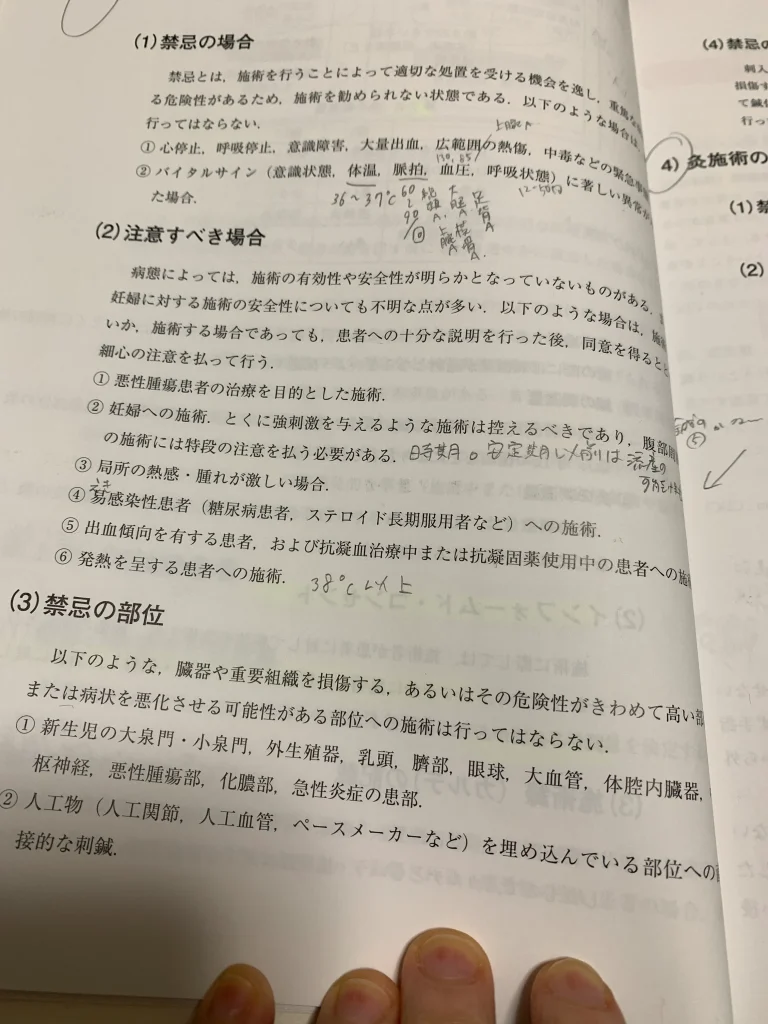 (1)禁忌の場合
禁忌とは，施術を行うことによって適切な処置を受ける機会を逸し，重篤な
る危険性があるため，施術を勧められない状態である．以下のような場合は，
行ってはならない．
上腕A
① 心停止，呼吸停止，意識障害，大量出血，広範囲の熱傷，中毒などの緊急事
130, 85
② バイタルサイン（意識状態，体温，脈拍，血圧，呼吸状態）に著しい異常が
た場合．
36〜37℃
60
90
(2)注意すべき場合
病態によっては，施術の有効性や安全性が明らかとなっていないものがある．
妊婦に対する施術の安全性についても不明な点が多い．以下のような場合は，施術
いか，施術する場合であっても，患者への十分な説明を行った後，同意を得ると
細心の注意を払って行う．
① 悪性腫瘍患者の治療を目的とした施術．
② 妊婦への施術．とくに強刺激を与えるような施術は控えるべきであり，腹部
の施術には特段の注意を払う必要がある．
時期。安定期以前は流産の
③ 局所の熱感・腫れが激しい場合．
④ 易感染性患者（糖尿病患者，ステロイド長期服用者など）への施術．
⑤ 出血傾向を有する患者，および抗凝血治療中または抗凝固薬使用中の患者への施
⑥ 発熱を呈する患者への施術．
38℃以上
(3)禁忌の部位
以下のような，臓器や重要組織を損傷する，あるいはその危険性がきわめて高い部
または病状を悪化させる可能性がある部位への施術は行ってはならない．
① 新生児の大泉門・小泉門，外生殖器，乳頭，臍部，眼球，大血管，体腔内臓器，
枢神経，悪性腫瘍部，化膿部，急性炎症の患部．
② 人工物（人工関節，人工血管，ペースメーカーなど）を埋め込んでいる部位への
接的な刺鍼．
(4)禁忌の
刺入
損傷す
て鍼
行っ
4) 灸施術の
(1)禁
(2)